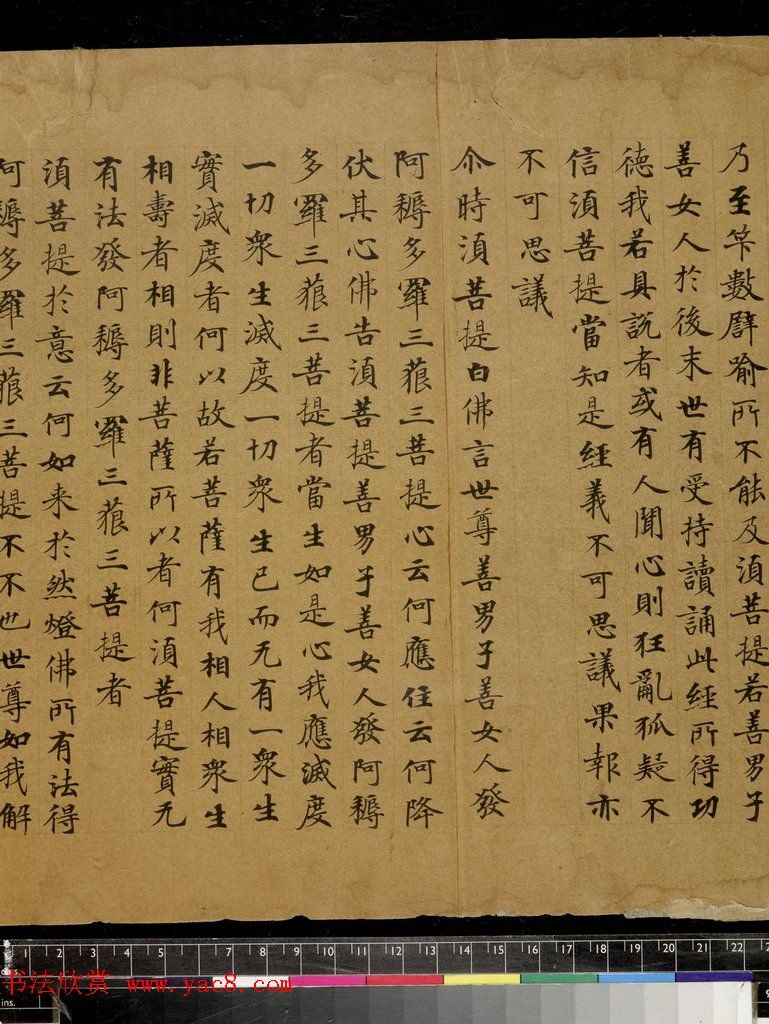 乃至筭數譬喻所不能及湏菩提若善男子
善女人於後末世有受持讀誦此經所得功
德我若具説者或有人聞心則狂亂狐疑不
信湏菩提當知是經義不可思議果報亦
不可思議
尒時湏菩提白佛言世尊善男子善女人發
阿耨多羅三藐三菩提心云何應住云何降
伏其心佛告湏菩提善男子善女人發阿耨
多羅三藐三菩提者當生如是心我應滅度
一切衆生滅度一切衆生已而无有一衆生
實滅度者何以故若菩薩有我相人相衆生
相壽者相則非菩薩所以者何湏菩提實无
有法發阿耨多羅三藐三菩提者
湏菩提於意云何如来於然燈佛所有法得
阿耨多羅三藐三菩提不不也世尊如我解
1 2 3 4 5 7 8 9 10 11 12 13 14 15 16 17 18 19 20 21 22
书法欣赏 www.yac8.com
ins.